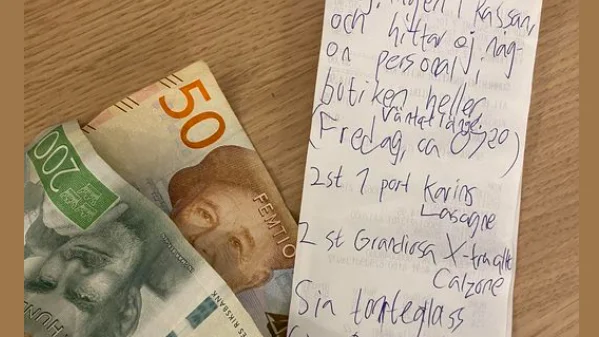 ingen i kassan,
och hittar ej någ-
on personal i
butiken heller
väntat länge.
(Fredag, ca 0920)
2st 1 port Karins
Lasagne
2 st Grandiosa X-tra allt
Calzone
Sia tårteglass
50
FEMTIO
200
ES RIKSBANK
HUN